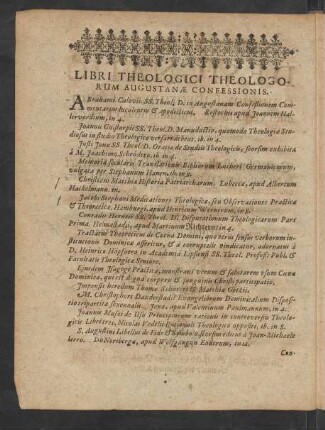 LIBRI THEOLOGICI THEOLOGO-
RUM AUGUSTANÆ CONFESSIONIS.
ABrahami Calovii SS. Theol. D. in Augustanam Confessionem Com-
mentarium & Rostochii apud Joannem Hal-
lervordium, in 4.
Joannis SS. Theol. D. Manuductio, quomodo Theologiæ Stu-
diosus in studio Theologico versari debeat, ib. in 4.
Justi Jonæ SS. Theol. D. Oratio de Studiis Theologicis, seorsim exhibita
à M. Joachimo Schrödero, ib. in 4.
Memoria secularis Translationis Bibliorum Lutheri Germanicorum,
vulgata per Stephanum in 8.
Christiani Matthiæ Historia Patriarcharum. Lubecæ, apud Albertum
Hackelmann. in.
Jacobi Stephani Meditationes Theologicæ, seu Observationes Practicæ
& Theoreticæ, Hamburgi, apud Henricum in 8.
Conradi Hornei SS. Theol. D. Disputationum Theologicarum Part
Prima. Helmstadi, apud Martinum in 4.
Tractatus Theoreticus de Cœna Domini, quo verus sensus verborum in-
stitutionis Dominicæ asseritur, & à corruptelis vindicatur, adornatus à
D. Heinrico Höpfnero in Academia Lipsensi SS. Theol. Profess: Publ. &
Facultatis Theologicæ Seniore.
Ejusdem Isagoge Practica, monstrans verum & salutarem usum Cœnæ
Dominicæ, qui est digna corporis & sanguinis Christi participatio.
Impensis hæredum Thomæ Schüreri & Matthiæ Götzii.
M. Christophori Evangeliorum Dominicalium Dispo-
sitio Jenæ, apud in 4.
Joannis Musæi de Usu Principiorum rationis in controversiis Theolo-
gicis Libri tres, Nicolai Vedelii Theologico oppositi, ib. in 8.
S. Augustini Libellus de Fide & Symbolo, seorsim editus à Joan-Michaele
Norbergæ, apud Wolfgangum Endterum, in
Con-